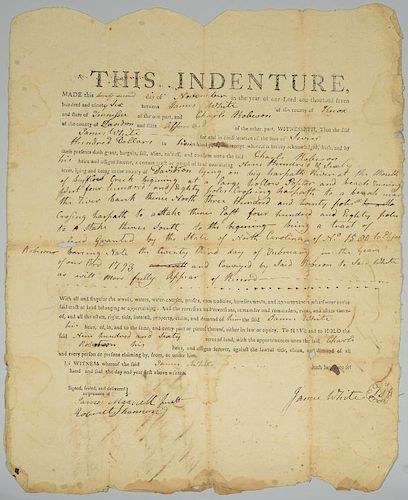 THIS INDENTURE,
MADE this twenty second day of November in the year of our Lord one thousand seven
hundred and ninety Six between James White of the county of Knox
and state of Tennessee of the one part, and Charles Robeson
of the county of Davidson and state afforesaid of the other part, WITNESSETH, That the said
James White for and in consideration of the sum of Seven
Hundred Dollars to him in hand paid, the receipt whereof is hereby acknowledged, hath and by
these presents doth grant, bargain, sell, alien, enfeoff, and confirm unto the said Charles Robeson
his heirs and assigns forever, a certain tract or parcel of land containing Nine Hundred & Sixty
acres, lying and being in the county of Davidson lying on big harpath River at the Mouth
of Buffeloe Creek Beginning at a large Cotton &
West four hundred and Eighty poles Crossing harpath to a
the River bank thence North three Hundred and twenty poles
Crosing harpath to a Stake thence East four hundred and Eighty poles
to a Stake thence South to the begening being a tract of
Land Granted by the State of North Carolina of No. 1500 to
Robeson bearing date the twenty third day of February in the year
of our Lord 1793 and Conveyed by Said Robeson to Said White
as will more fully Appear of Record
With all and singular the woods, waters, water-courses, profits, commodities, hereditaments, and appurtenances whatsoever to the
said tract of land belonging or appertaining: And the reversion and reversions, remainder and remainders, rents, and issues thereof;
and all the estate, right, title, interest, property, claim, and demand of him the said James White
his heirs, of, in, and to the same, and every part or parcel thereof, either in law or equity. To HAVE and to HOLD the
said Nine hundred and Sixty acres of land, with the appurtenances unto the said Charles
Robeson his heirs, and assigns forever, against the lawful title, claim, and demand of all
and every person or persons claiming by, from, or under him
IN WITNESS whereof the said James White hath hereunto set
hand and seal, the day and year first above written.
Signed, sealed, and delivered
in presence of
James Maxwell Jurat
Robert Shannon
James White